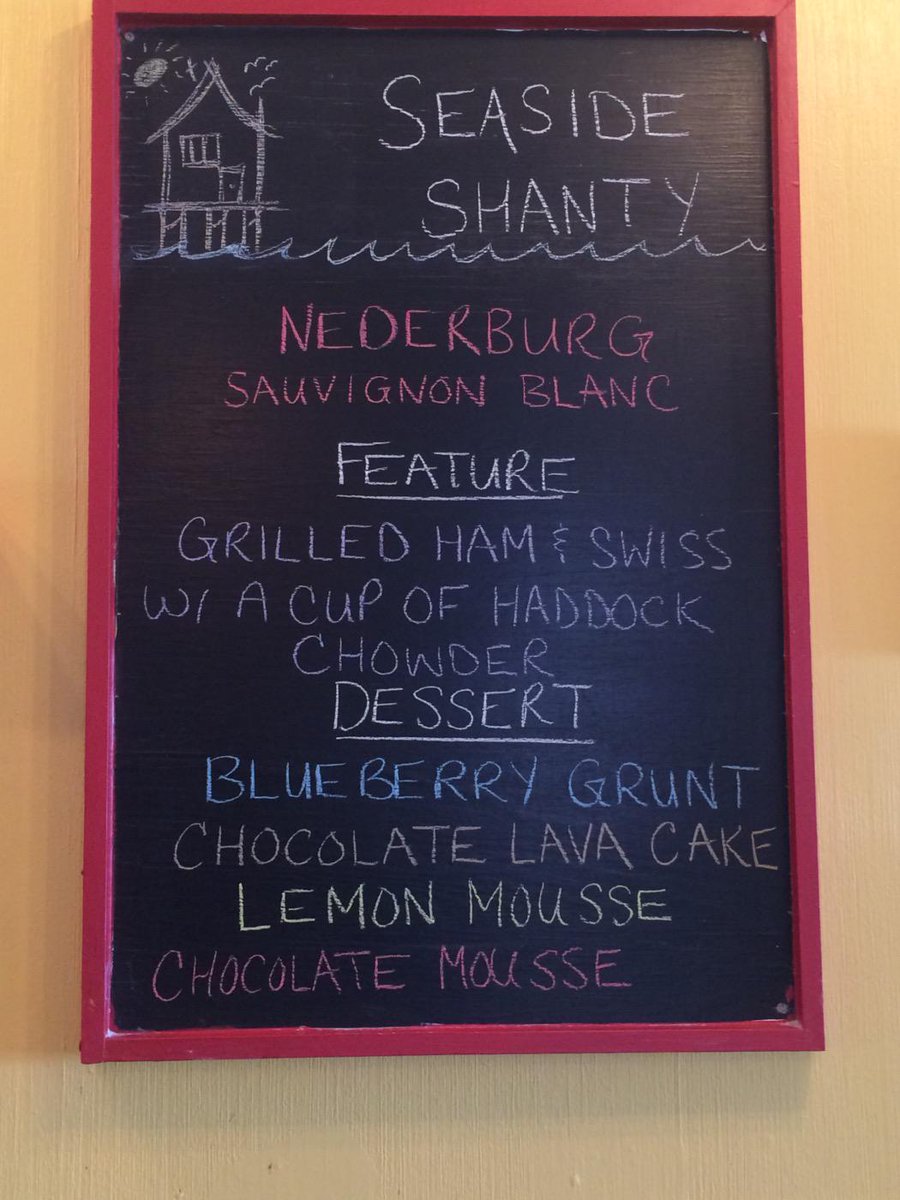 SEASIDE
SHANTY
NEDERBURG
SAUVIGNON BLANC
FEATURE
GRILLED HAM & SWISS
W/ A CUP OF HADDOCK
CHOWDER
DESSERT
BLUEBERRY GRUNT
CHOCOLATE LAVA CAKE
LEMON MOUSSE
CHOCOLATE MOUSSE